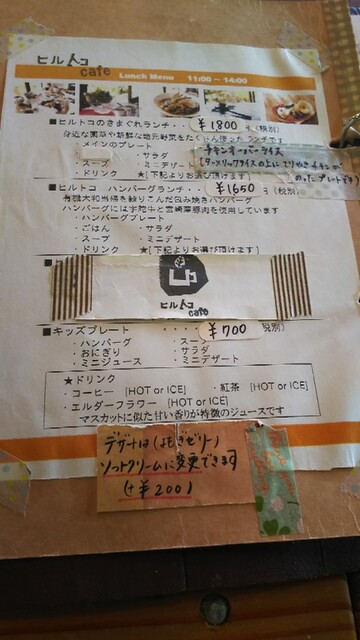 ヒルトコ
cafe Lunch Menu 11:00 ~ 14:00
■ヒルトコのきまぐれランチ・・ ¥1800 (税別)
身近な薬草や新鮮な地元野菜をたくさん使ったランチです
・メインのプレート
チキンオーバーライス
・サラダ
(ターメリックライスの上にてりやきチキンが
・スープ ・ミニデザート
のったプレートです)
・ドリンク ★[下記よりお選び頂けます]
■ヒルトコ ハンバーグランチ・・ ¥1650 (税別)
有機大和当帰を練りこんだ包み焼きハンバーグ
ハンバーグには宇陀牛と宮崎産豚肉を使用しています
・ハンバーグプレート
・ごはん ・サラダ
・スープ ・ミニデザート
・ドリンク ★[下記よりお選び頂けます]
ヒルトコ
cafe
■キッズプレート ・・・・ ¥700 税別)
・ハンバーグ ・スープ
・おにぎり ・サラダ
・ミニジュース ・ミニデザート
★ドリンク
・コーヒー [HOT or ICE] ・紅茶 [HOT or ICE]
・エルダーフラワー [HOT or ICE]
マスカットに似た甘い香りが特徴のジュースです
デザートは(よもぎゼリー)
ソフトクリームに変更できます
(+¥200)